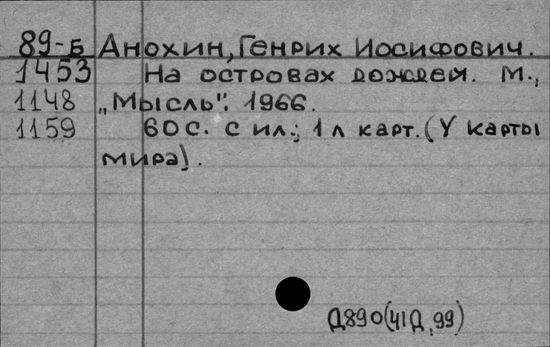 89-Б Анохин, Генрих Иосифович.
1453 На островах дождей. М.,
1148 „Мысль". 1966.
1159 60с. с ил.; 1 л карт. (У карты
мира).
Д890(41Д,99)